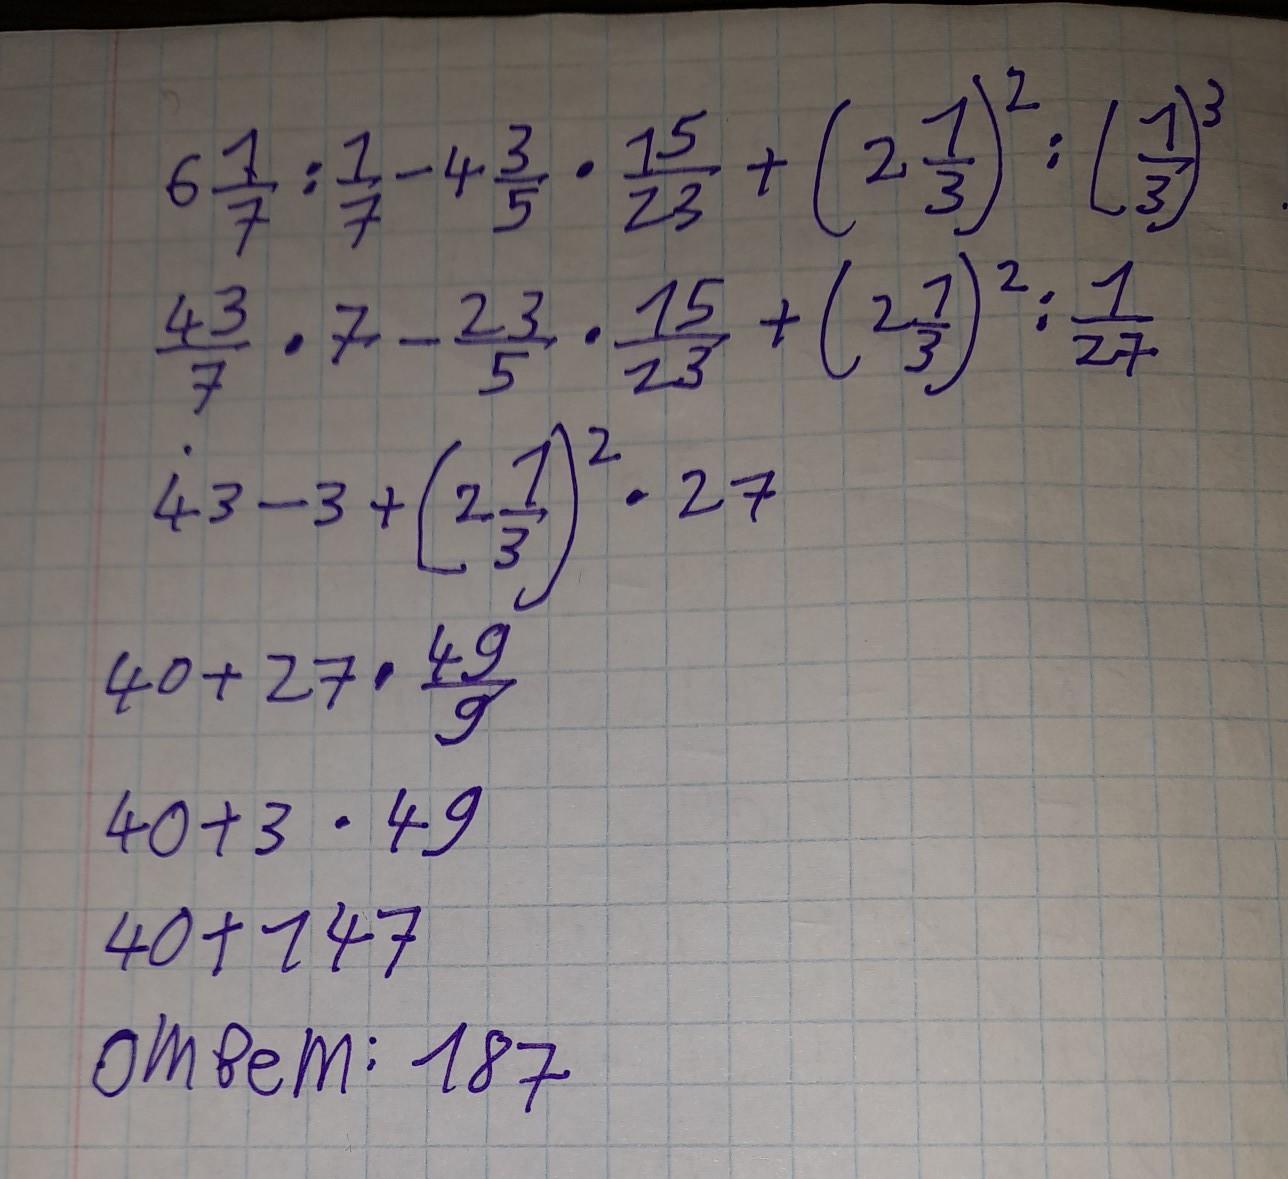 6 1/7 : 1/7 - 4 3/5 · 15/23 + (2 1/3)² : (1/3)³
43/7 · 7 - 23/5 · 15/23 + (2 1/3)² : 1/27
43 - 3 + (2 1/3)² · 27
40 + 27 · 49/9
40 + 3 · 49
40 + 147
ответ: 187